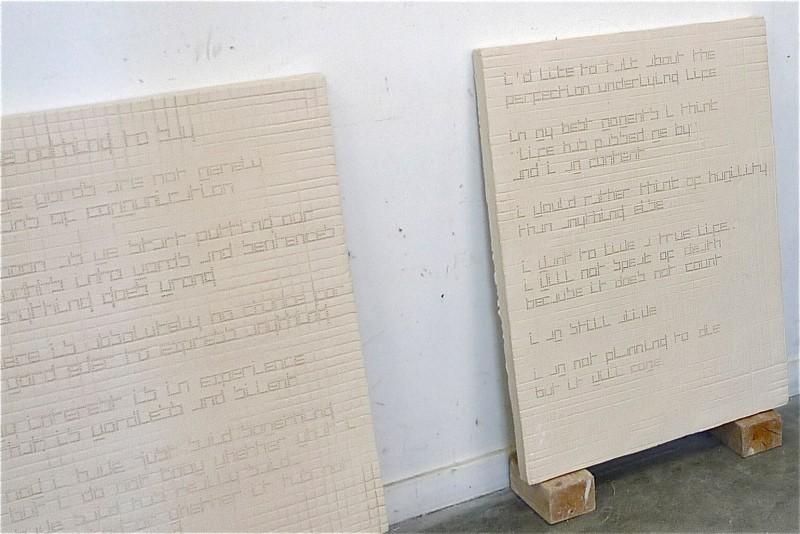 nothing to say
words are not merely
of communication
as we start putting our
into words and sentences
goes wrong
is absolutely no chance for
to express anything
interest is in experience
that is wordless and silent
i have just said something
but i do not know whether what
said has really
whether it has not
i'd like to talk about the
perfection underlying life
in my best moments i think
"life has passed me by"
and i am content
i would rather think of humility
than anything else
i want to live a true life.
i will not speak of death
because it does not count
i am still alive
i am not planning to die
but it will come